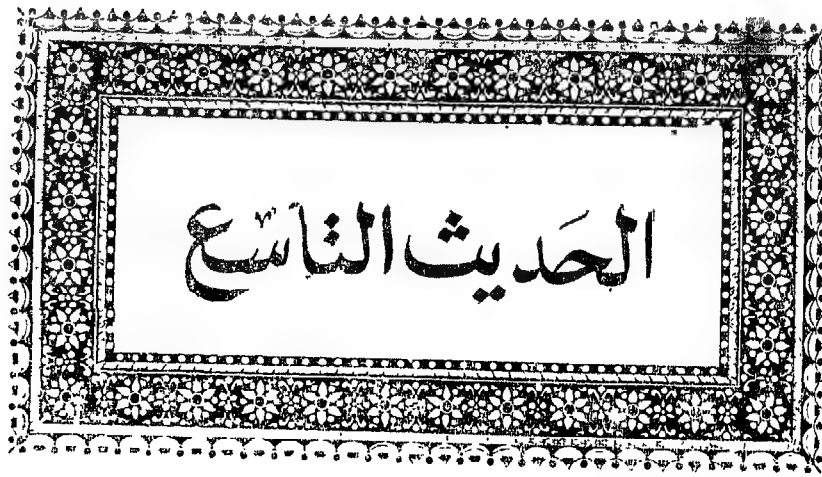 الحَديث التاسع